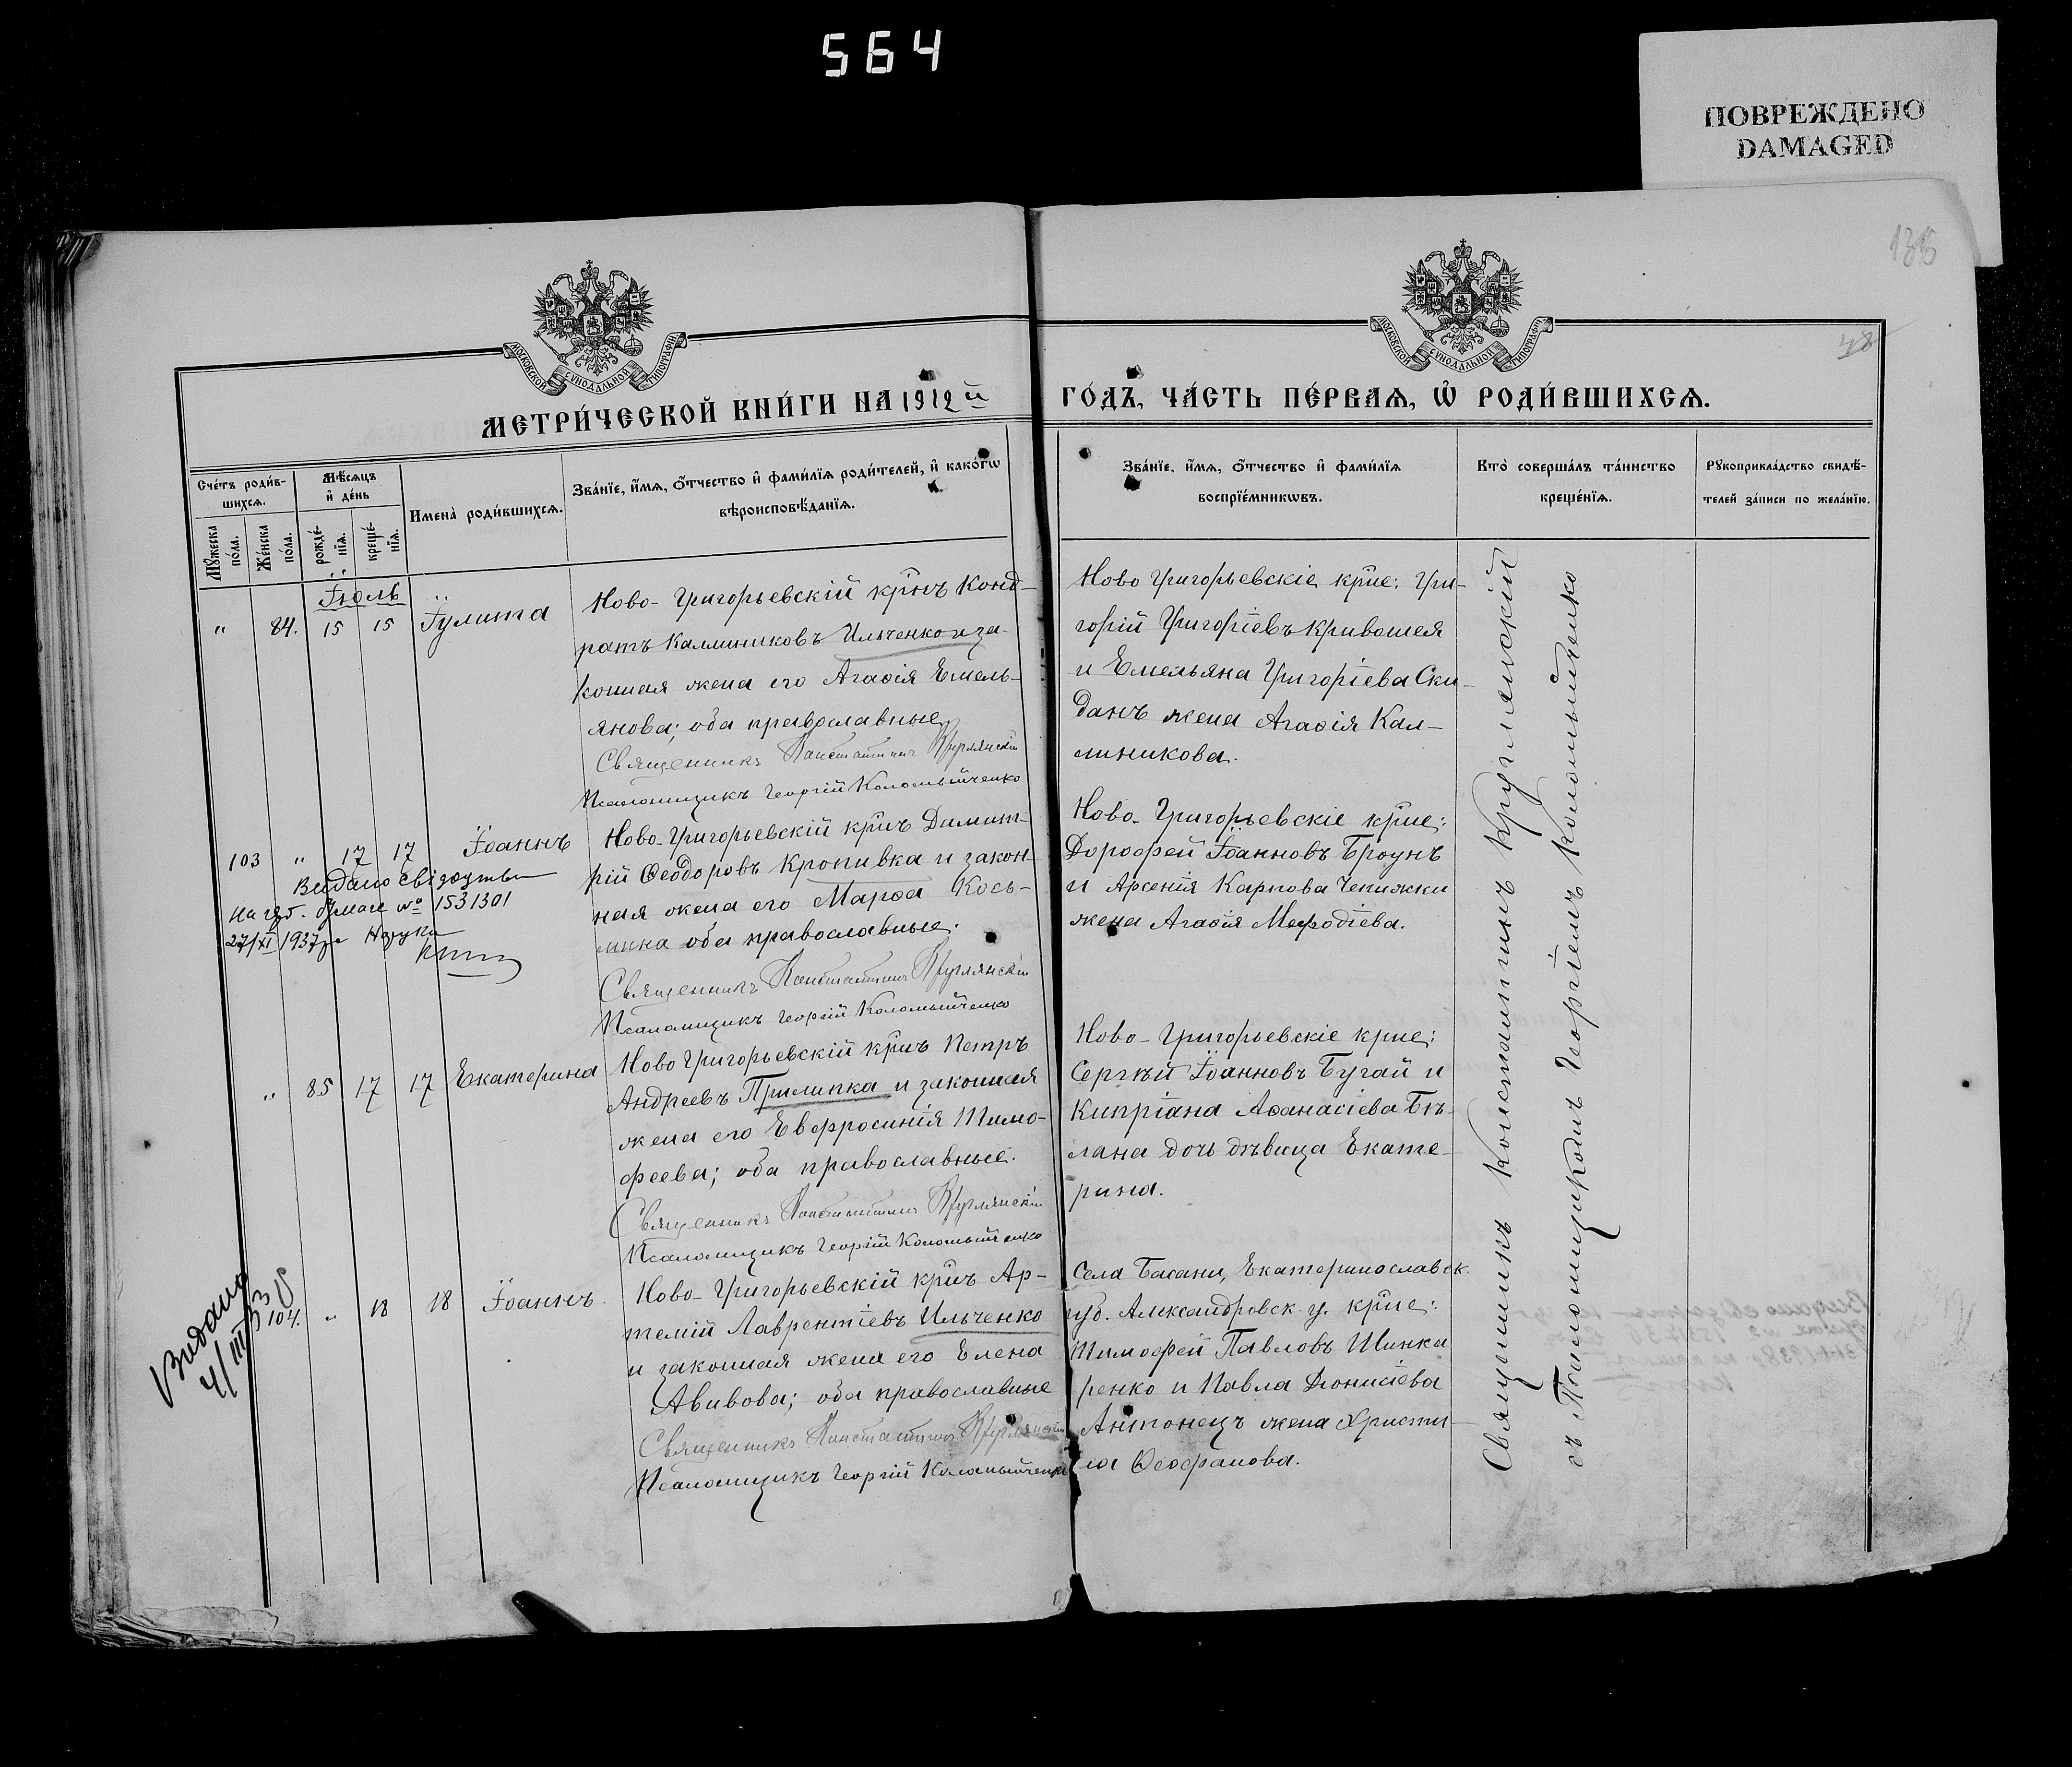 564
ПОВРЕЖДЕНО
DAMAGED
136
48
МОСКОВСКОЙ СѴНОДАЛЬНОЙ ТИПОГРАФІИ
МОСКОВСКОЙ СѴНОДАЛЬНОЙ ТИПОГРАФІИ
МЕТРИ́ЧЕСКОЙ КНИ́ГИ НА 1912й
ГО́ДЪ, ЧА́СТЬ ПЕ́РВАѦ, Ѡ҆ РОДИ́ВШИХСѦ.
Сче́тъ роди́в-
шихсѧ.
Мѣ́сѧцъ
и҆ де́нь
Мꙋ́жеска
по́ла.
Же́нска
по́ла.
рожде́-
нїѧ.
креще́-
нїѧ.
Имена̀ роди́вшихсѧ.
Зва́нїе, и҆́мѧ, ѻ҆́тчество и҆ фами́лїѧ роди́телей, и҆ како́гѡ
вѣроисповѣ́данїѧ.
Зва́нїе, и҆́мѧ, ѻ҆́тчество и҆ фами́лїѧ
воспрїе́мникѡвъ.
Кто̀ соверша́лъ та́инство
креще́нїѧ.
Рꙋкоприкла́дство свидѣ́-
телей за́писи по жела́нїю.
Іюль
" 84. 15 15 Іулита
Ново-Григорьевскій крнъ Конд-
ратъ Каллиниковъ Ильченко и за-
конная жена его Агаѳія Емель-
янова; оба православные
Священникъ Константинъ Круглянскій
Псаломщикъ Георгій Коломыйченко
Ново Григорьевскіе крне: Гри-
горій Григоріевъ Кривошея
и Емельяна Григоріева Ски-
данъ жена Агаѳія Кал-
линикова.
103 " 17 17 Іоаннъ
Видано свідоцтво
на гер. бумаге № 1531301
27/XI 1937 р
Ново-Григорьевскій крнъ Димит-
рій Ѳеодоровъ Кропивка и закон-
ная жена его Марѳа Кось-
мина оба православные.
Священникъ Константинъ Круглянскій
Псаломщикъ Георгій Коломыйченко
Ново-Григорьевскіе крне:
Дороѳей Іоанновъ Броунъ
и Арсенія Карпова Чепижки
жена Агаѳія Меѳодіева.
" 85 17 17 Екатерина
Ново Григорьевскій крнъ Петръ
Андреевъ Прилипка и законная
жена его Евфросинія Тимо-
феева; оба православные.
Священникъ Константинъ Круглянскій
Псаломщикъ Георгій Коломыйченко
Ново-Григорьевскіе крне:
Сергѣй Іоанновъ Бугай и
Кипріана Аѳанасіева Бѣ-
лана дочь дѣвица Екате-
рина.
Видано
4/III
104. " 18 18 Іоаннъ.
Ново-Григорьевскій крнъ Ар-
темій Лаврентіевъ Ильченко
и законная жена его Елена
Авивова; оба православные
Священникъ Константинъ Круглянскій
Псаломщикъ Георгій Коломыйченко
Села Басани, Екатеринославск.
губ. Александровск. у. крне:
Тимоѳей Павловъ Шинка
ренко и Павла Діонисіева
Антонецъ жена Христи-
на Ѳеофанова.
Священникъ Константинъ Круглянскій
съ Псаломщикомъ Георгіемъ Коломыйченко